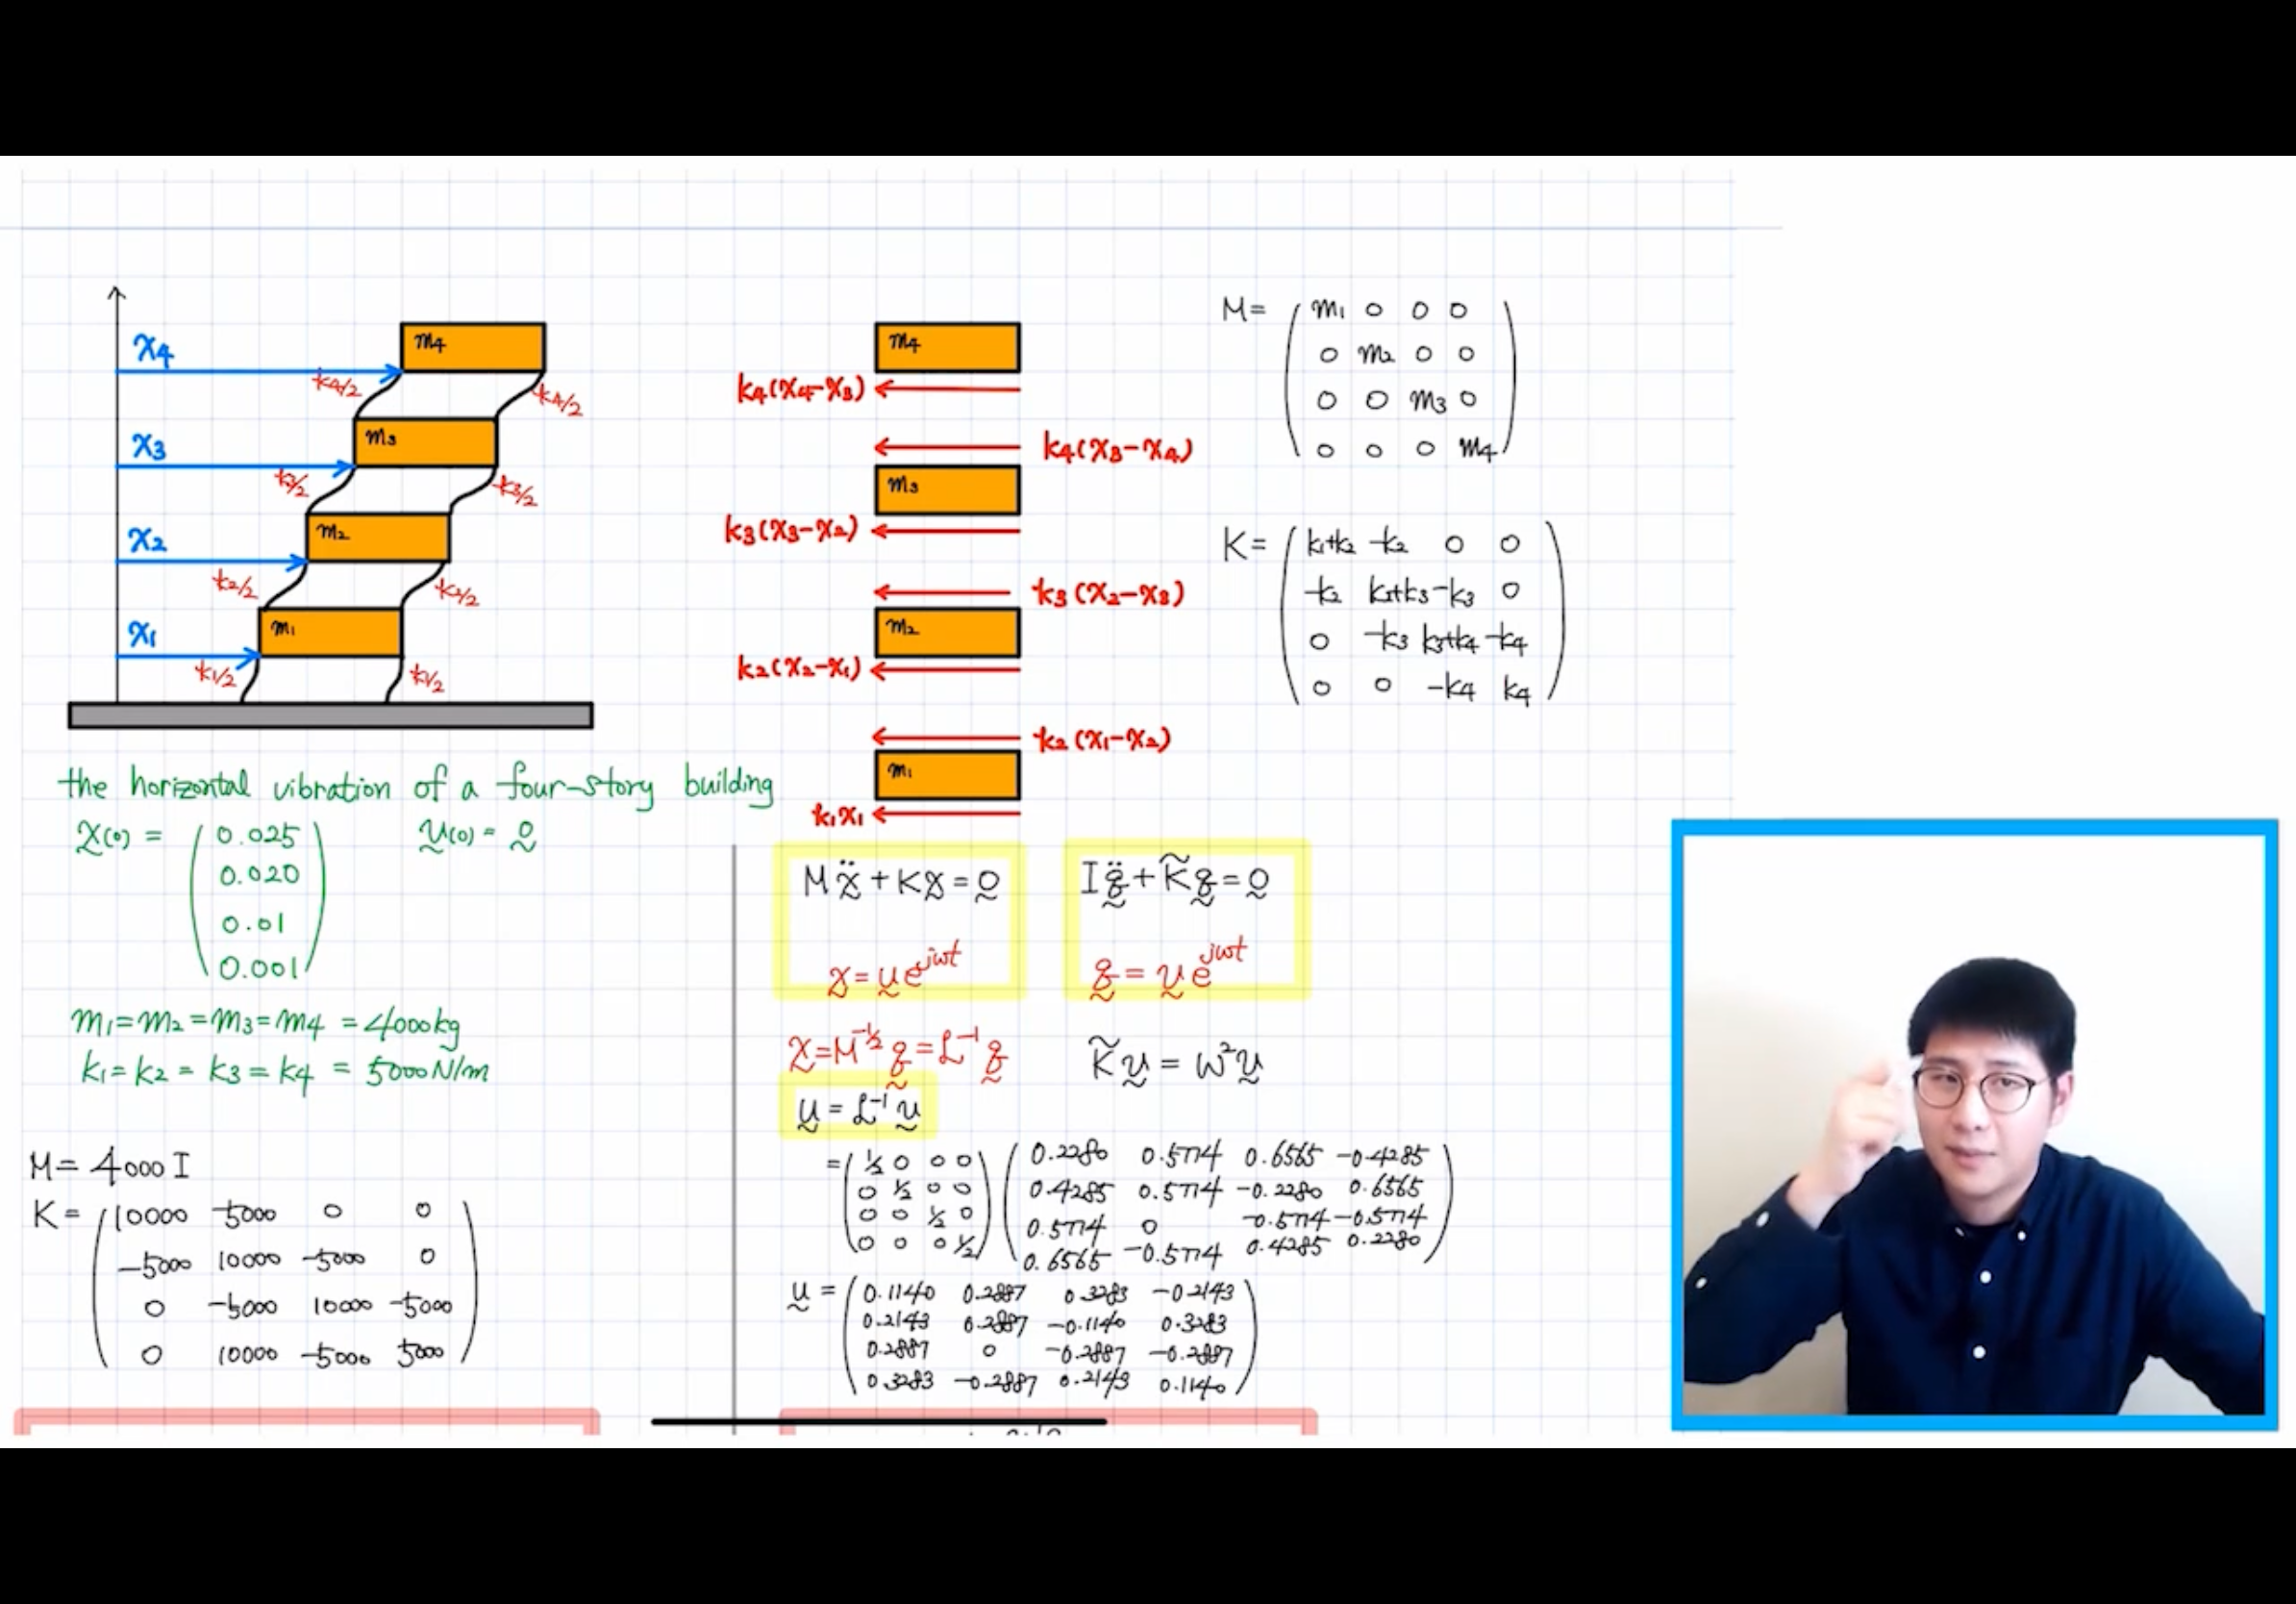 x4
m4
k4/2
k4/2
x3
m3
k3/2
k3/2
x2
m2
k2/2
k2/2
x1
m1
k1/2
k1/2
m4
k4(x4-x3)
k4(x3-x4)
m3
k3(x3-x2)
k3(x2-x3)
m2
k2(x2-x1)
k2(x1-x2)
m1
k1x1
M=
m1 0 0 0
0 m2 0 0
0 0 m3 0
0 0 0 m4
K=
k1+k2 -k2 0 0
-k2 k2+k3 -k3 0
0 -k3 k3+k4 -k4
0 0 -k4 k4
the horizontal vibration of a four-story building
x(0) =
0.025
0.020
0.01
0.001
v(0) = 0
m1=m2=m3=m4 = 4000kg
k1=k2=k3=k4 = 5000N/m
M= 4000 I
K=
10000 -5000 0 0
-5000 10000 -5000 0
0 -5000 10000 -5000
0 10000 -5000 5000
Mẍ + Kx = 0
x = ue^jωt
Iq̈ + K̃q = 0
q = ve^jωt
x = M^-½ q = L^-1 q
K̃v = ω²v
u = L^-1 v
=
½ 0 0 0
0 ½ 0 0
0 0 ½ 0
0 0 0 ½
0.2280 0.5774 0.6565 -0.4285
0.4285 0.5774 -0.2280 0.6565
0.5774 0 -0.5774 -0.5774
0.6565 -0.5774 0.4285 0.2280
u =
0.1140 0.2887 0.3283 -0.2143
0.2143 0.2887 -0.1140 0.3283
0.2887 0 -0.2887 -0.2887
0.3283 -0.2887 0.2143 0.1140